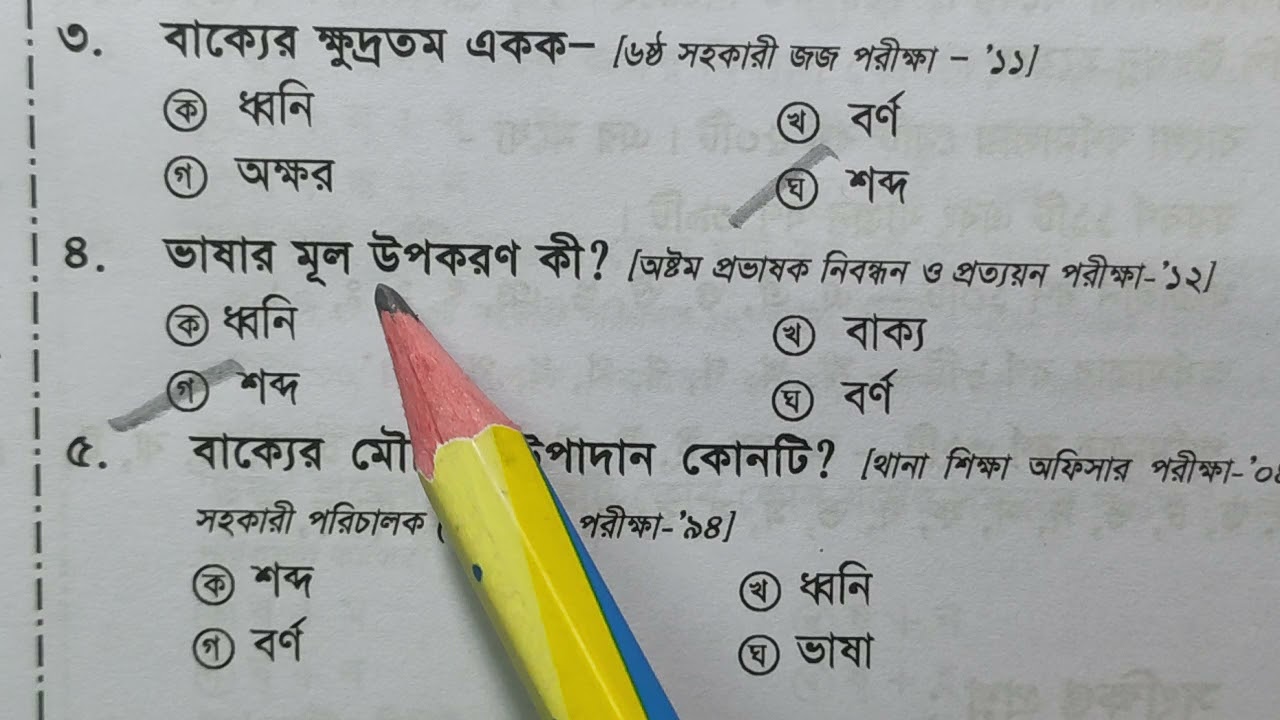 ৩. বাক্যের ক্ষুদ্রতম একক– [৬ষ্ঠ সহকারী জজ পরীক্ষা – '১১]
ক ধ্বনি খ বর্ণ
গ অক্ষর ঘ শব্দ
৪. ভাষার মূল উপকরণ কী? [অষ্টম প্রভাষক নিবন্ধন ও প্রত্যয়ন পরীক্ষা-'১২]
ক ধ্বনি খ বাক্য
গ শব্দ ঘ বর্ণ
৫. বাক্যের কোনটি? [থানা শিক্ষা অফিসার পরীক্ষা-
সহকারী পরিচালক পরীক্ষা-'৯৪]
ক শব্দ খ ধ্বনি
গ বর্ণ ঘ ভাষা